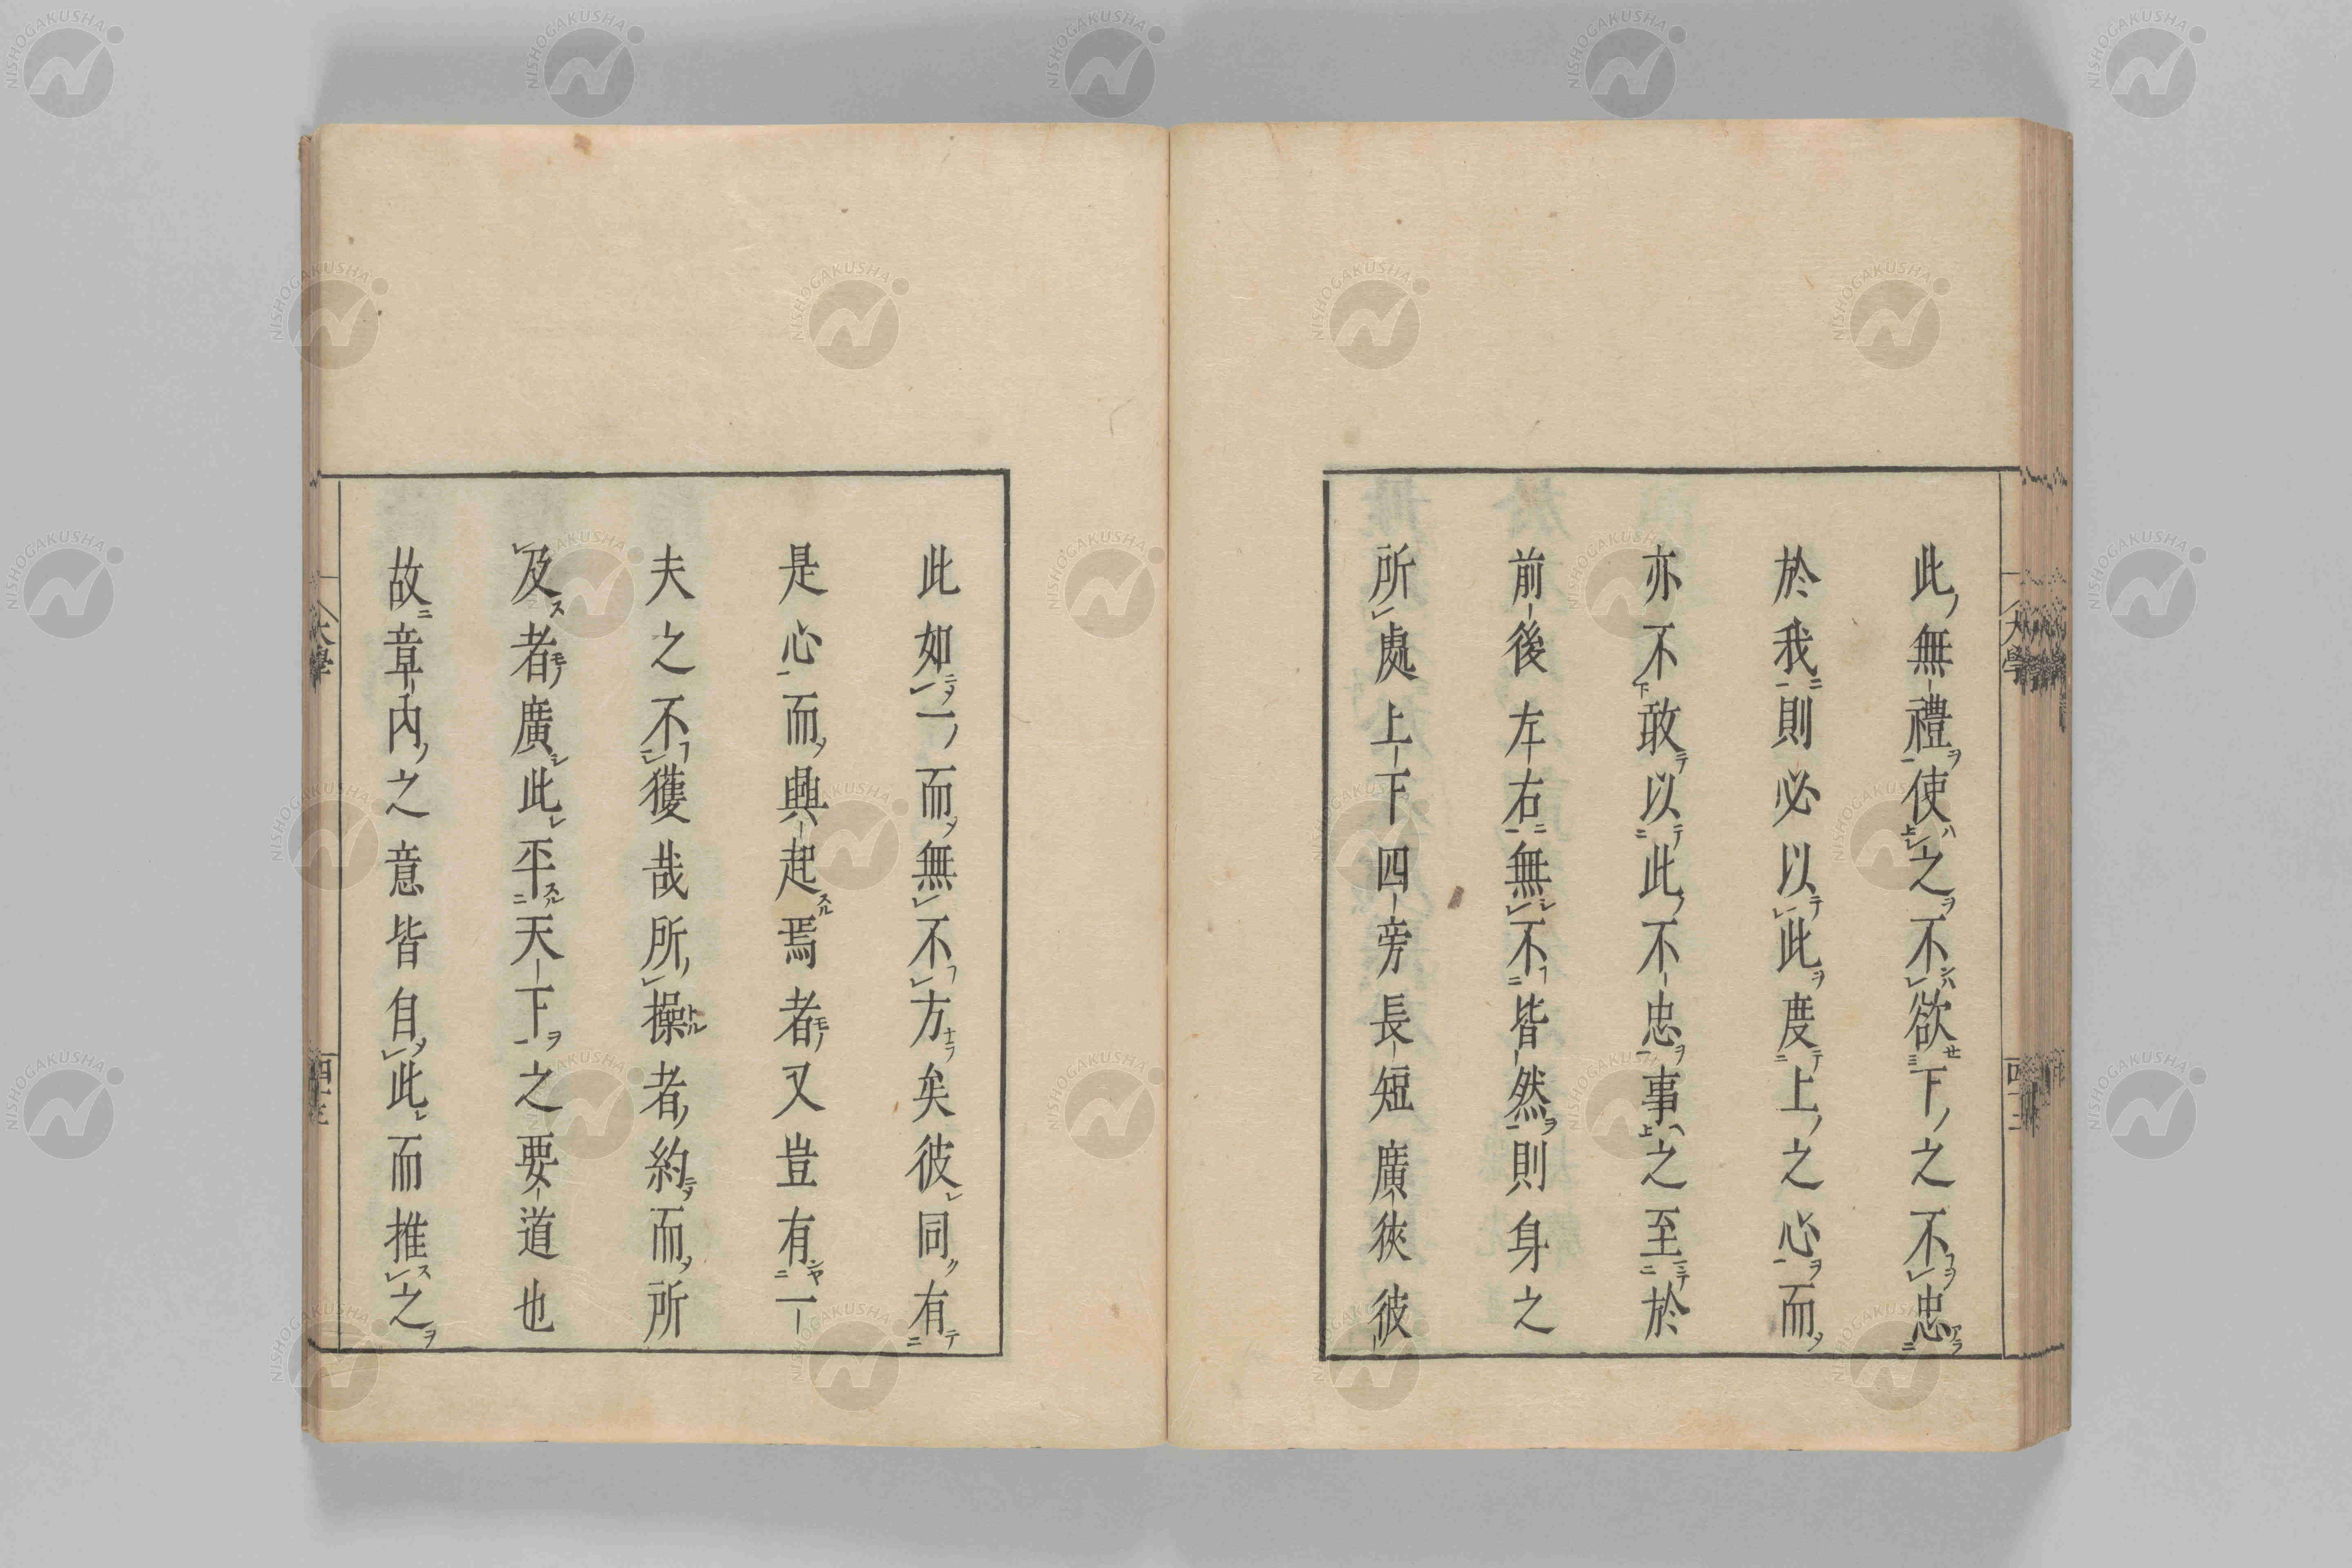 此無禮使之不欲下之不忠
於我則必以此度上之心而
亦不敢以此不忠事之至於
前後左右無不皆然則身之
所處上下四旁長短廣狹彼
此如一而無不方矣彼同有
是心而興起焉者又豈有一
夫之不獲哉所操者約而所
及者廣此平天下之要道也
故章内之意皆自此而推之
大學
NISHOGAKUSHA